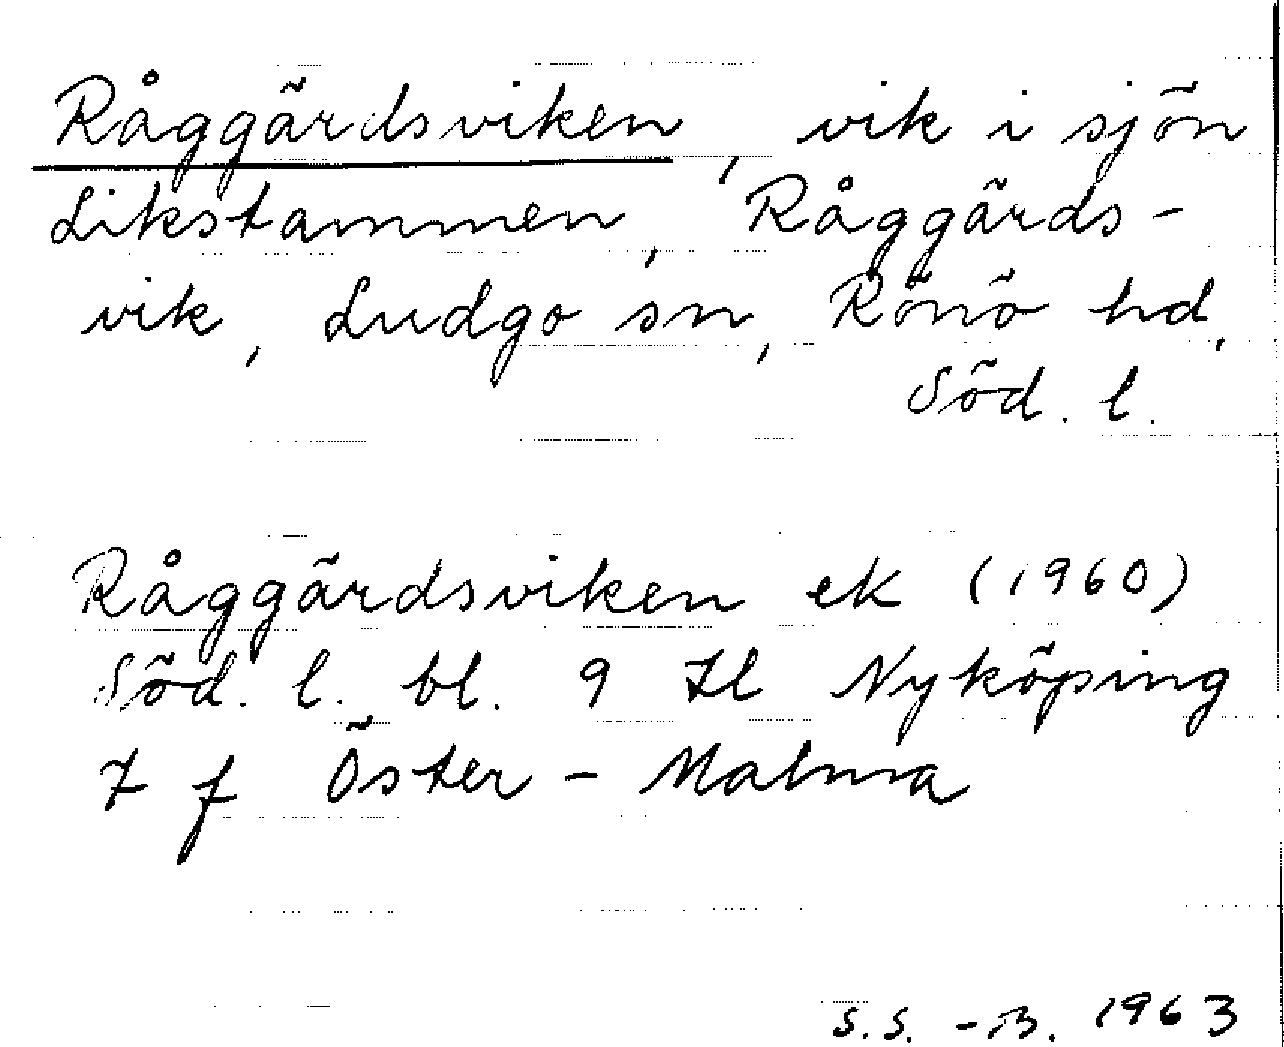 Råggärdsviken, vik i sjön
Likstammen, Råggärds-
vik, Ludgo sn, Rönö hd,
Söd. l.
Råggärdsviken ek (1960)
Söd. l. bl. 9 Il Nyköping
7 f Öster-Malma
S.S.-B. 1963